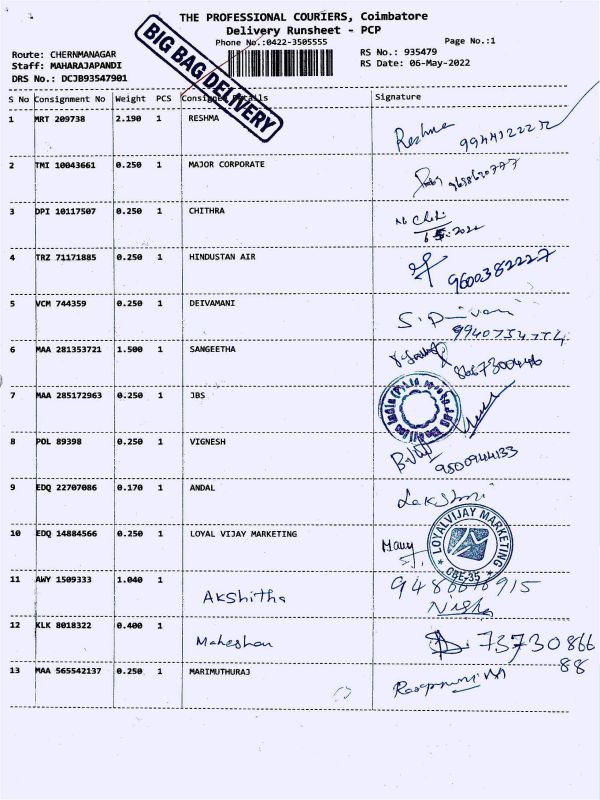 THE PROFESSIONAL COURIERS, Coimbatore
Delivery Runsheet - PCP
Phone No.:0422-3505555 Page No.:1
Route: CHERNMANAGAR RS No.: 935479
Staff: MAHARAJAPANDI RS Date: 06-May-2022
DRS No.: DCJB93547901
BIG BAG DELIVERY
S No Consignment No Weight PCS Consignee Details Signature
1 MRT 209738 2.190 1 RESHMA Reshma
2 TMI 10043661 0.250 1 MAJOR CORPORATE
3 DPI 10117507 0.250 1 CHITHRA
4 TRZ 71171885 0.250 1 HINDUSTAN AIR 9600382227
5 VCM 744359 0.250 1 DEIVAMANI
6 MAA 281353721 1.500 1 SANGEETHA
7 MAA 285172963 0.250 1 JBS
8 POL 89398 0.250 1 VIGNESH 9500944133
9 EDQ 22707086 0.170 1 ANDAL Lakshmi
10 EDQ 14884566 0.250 1 LOYAL VIJAY MARKETING
LOYALVIJAY MARKETING
CBE-35
11 AWY 1509333 1.040 1 Akshitha
Nisha
12 KLK 8018322 0.400 1 73730866
88
13 MAA 565542137 0.250 1 MARIMUTHURAJ